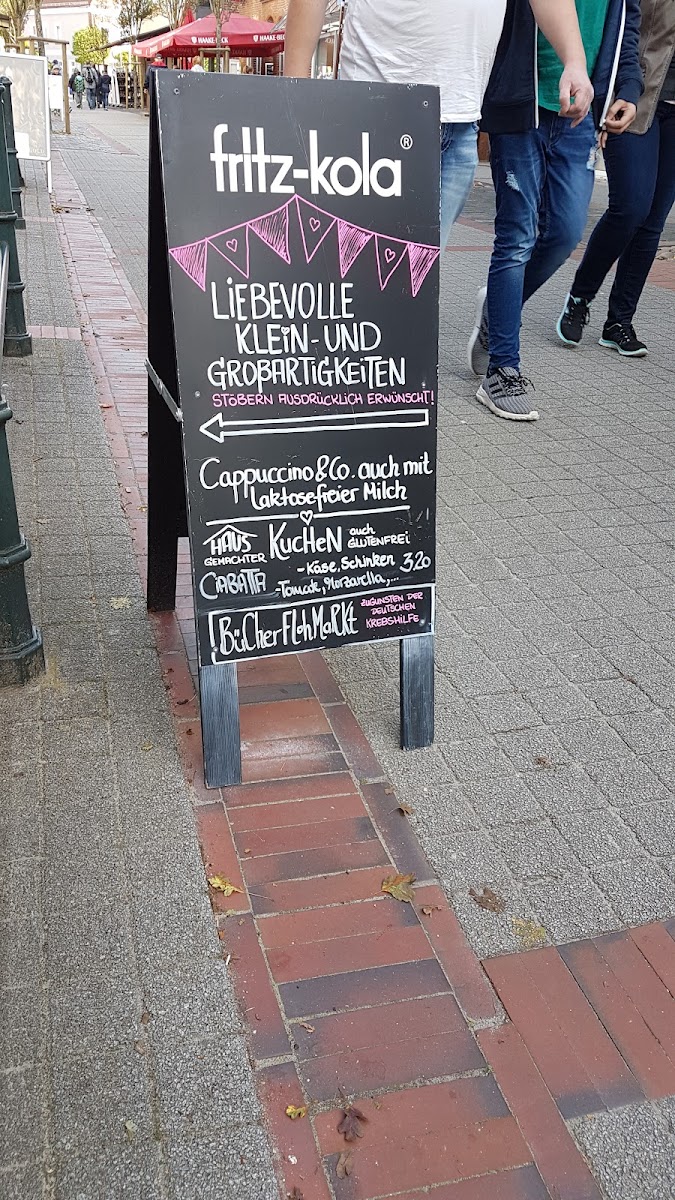 HAAKE-BECK
HAAKE-BECK
fritz-kola®
LiEBEVOLLE
KLEiN-UND
GROßARTiGKEiTEN
STöBERN AUSDRÜCKLiCH ERWÜNSCHT!
Cappuccino & Co. auch mit
Laktosefreier Milch
HAUS
GEMACHTER KUCHEN auch GLUTENFREi
CIABATTA -Käse, Schinken 3,20
-Tomate, Mozzarella,...
BüCHerFlohMaRKt ZUGUNSTEN DER
DEUTSCHEN
KREBSHiLFE